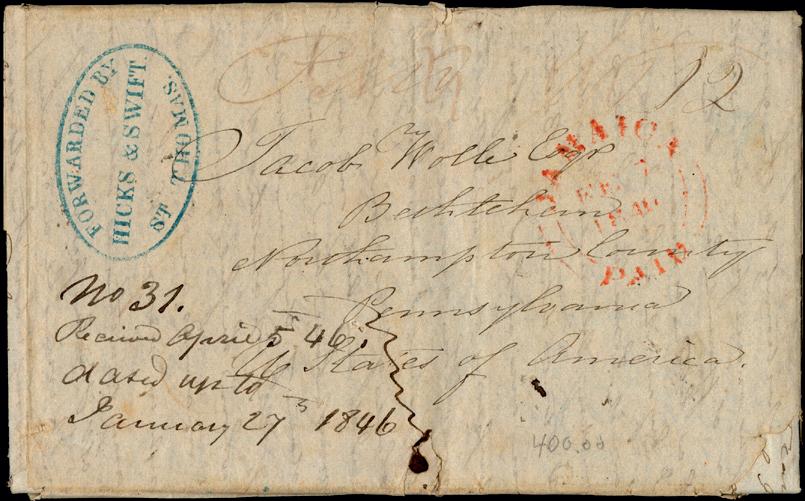 FORWARDED BY
HICKS & SWIFT.
ST THOMAS.
12
JAMAICA
1846
PAID
Jacob Wolle Esqr
Bethlehem
Northampton County
Pennsylvania
U States of America.
No 31.
Received April 5th 46.
dated up to
January 27th 1846
400.00